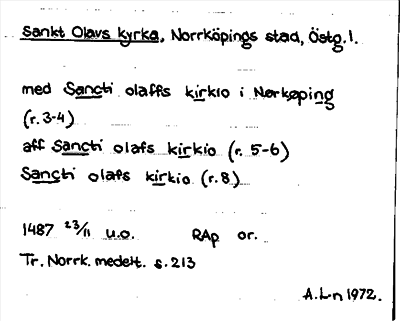 Sankt Olavs kyrka, Norrköpings stad, Östg.l.
med Sancti olaffs kirkio i Nørkøping
(r.3-4)
aff Sancti olafs kirkio (r. 5-6)
Sancti olafs kirkio (r.8)
1487 23/11 u.o. RAp or.
Tr. Norrk. medelt. s.213
A.L-n 1972.